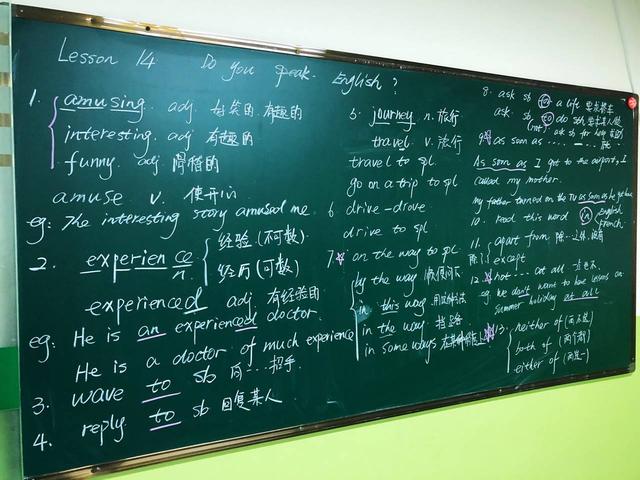 Lesson 14 Do you speak English?
1. amusing adj. 好笑的 有趣的
interesting adj 有趣的
funny adj. 滑稽的
amuse v. 使开心
eg: The interesting story amused me.
2. experience n. 经验 (不可数)
经历 (可数)
experienced adj. 有经验的
eg: He is an experienced doctor.
He is a doctor of much experience
3. wave to sb 向…招手
4. reply to sb 回复某人
5. journey n. 旅行
travel v. 旅行
travel to spl.
go on a trip to spl
6. drive-drove
drive to spl
7. on the way to spl.
by the way
in this way 用这种方法
in the way 挡路
in some ways
8. ask sb for a lift 要求搭车
ask sb to do sth 要求某人做
(not) ask sb for help
9. as soon as ……
As soon as I got to the airport, I
called my mother.
My father turned on the TV as soon as he got home
10. read this word in English
French.
11. apart from 除…之外，没有
except
12. not … at all 一点也不
eg. We don't want to have lessons on
summer holiday at all
13. neither of
both of (两个都)
either of (两者一)